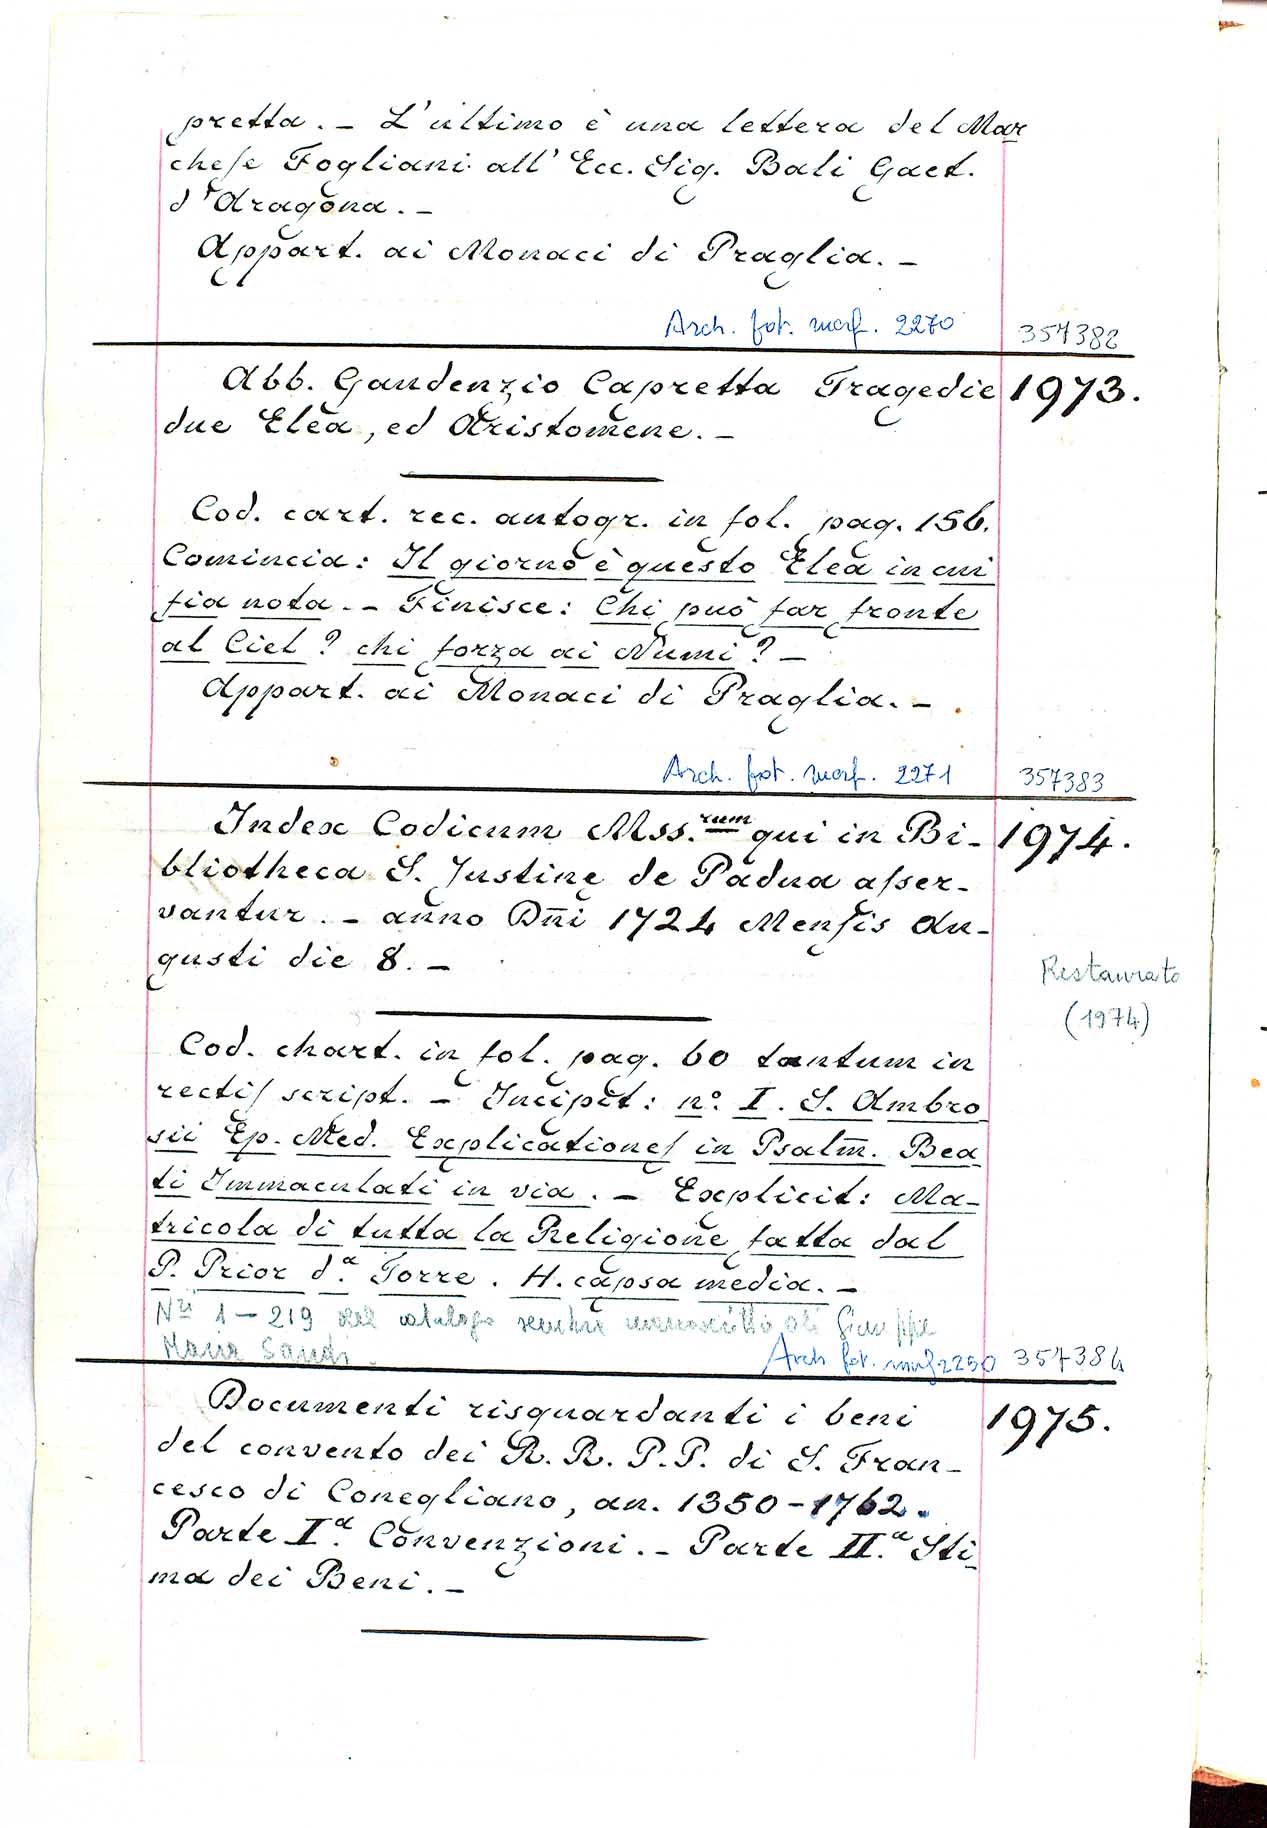 pretta. - L'ultimo è una lettera del Mar
chese Fogliani all' Ecc. Sig. Balì Gaet.
d'Aragona. -
Appart. ai Monaci di Praglia. -
Arch. fot. marf. 2270 357382
Abb. Gaudenzio Capretta Tragedie 1973.
due Elea, ed Aristomene. -
Cod. cart. rec. autogr. in fol. pag. 156.
Comincia: Il giorno è questo Elea in cui
fia nota. - Finisce: Chi può far fronte
al Ciel? chi forza ai Numi? -
Appart. ai Monaci di Praglia. -
Arch. fot. marf. 2271 357383
Index Codicum Mss.rum qui in Bi- 1974.
bliotheca S. Justinę de Padua asser-
vantur. - anno Dñi 1724 Mensis Au-
gusti die 8. -
Restaurato
(1974)
Cod. chart. in fol. pag. 60 tantum in
rectis script. - Incipit: n.° I. S. Ambro
sii Ep. Med. Explicationes in Psalm̄. Bea
ti Immaculati in via. - Explicit: Ma-
tricola di tutta la Religione fatta dal
P. Prior d.a Torre. H. capsa media. -
N.ri 1 - 219 del catalogo manoscritto di Giuseppe
Maria Sandi.
Arch fot. marf 2250 357384
Documenti risguardanti i beni 1975.
del convento dei R. R. P. P. di S. Fran-
cesco di Conegliano, an. 1350 - 1762.
Parte I.a Convenzioni. - Parte II.a Sti-
ma dei Beni. -